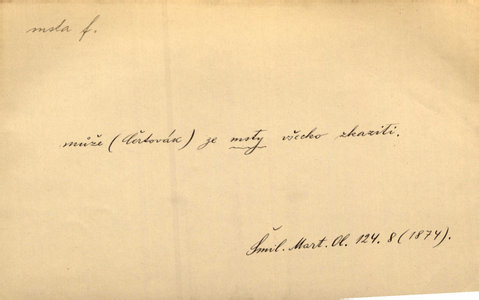 msta f.
může (Čertovák) ze msty všecko zkaziti.
Šmil. Mart. Ol. 124. 8 (1874).